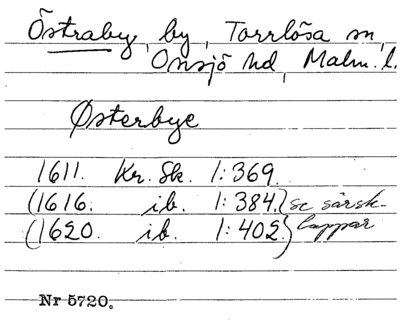 Östraby, by, Torrlösa sn,
Onsjö hd, Malm. l.
Østerbye
1611. Kr. Sk. 1:369.
(1616. ib. 1:384.) se särsk.
(1620. ib. 1:402.) lappar
Nr 5720.